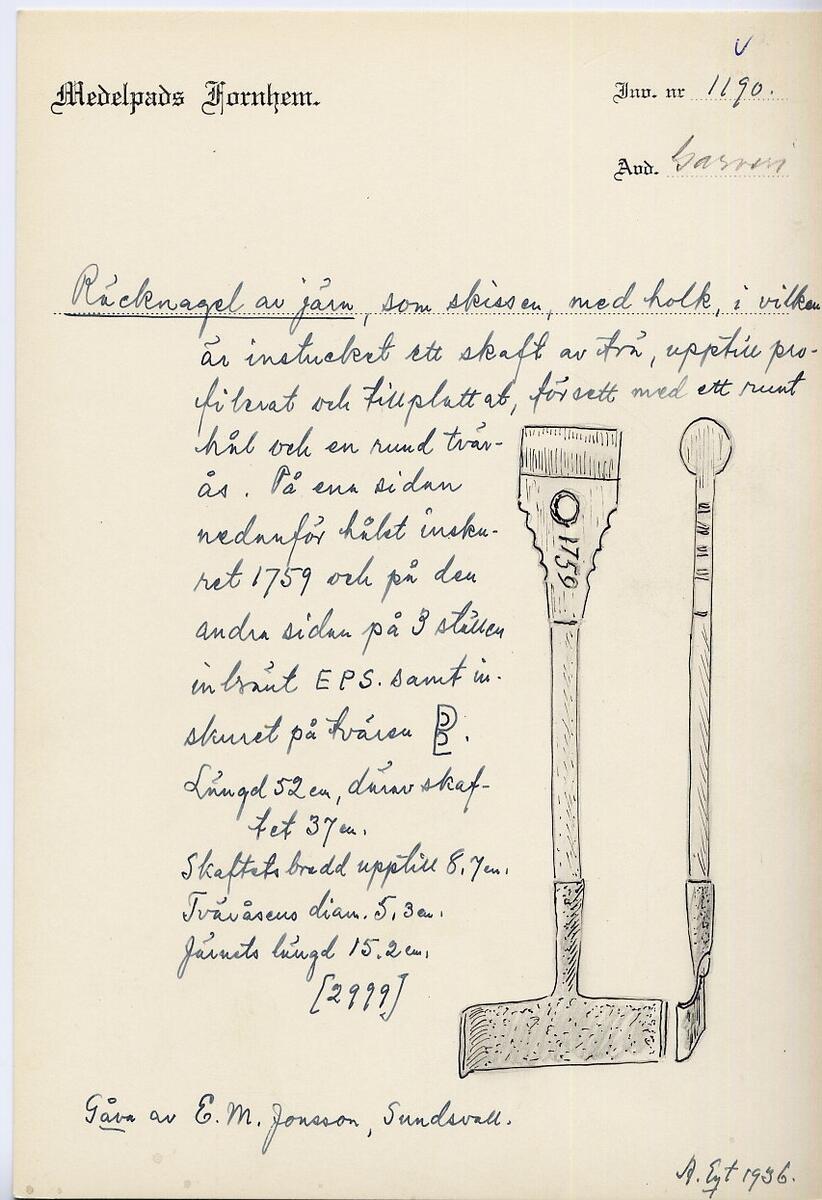 Medelpads Fornhem.
Inv. nr 1190.
Avd. Garveri
Räcknagel av järn, som skissen, med holk, i vilken
är instucket ett skaft av trä, upptill pro-
filerat och tillplattat, försett med ett runt
hål och en rund tvär-
ås. På ena sidan
nedanför hålet insku-
ret 1759 och på den
andra sidan på 3 ställen
inbränt EPS. samt in-
skuret på tvärsn
1759
Längd 52 cm, därav skaf-
tet 37 cm.
Skaftets bredd upptill 8,7 cm.
Tväråsens diam. 5,3 cm.
Järnets längd 15.2 cm.
[2999]
Gåva av E. M. Jonsson, Sundsvall.
1936.